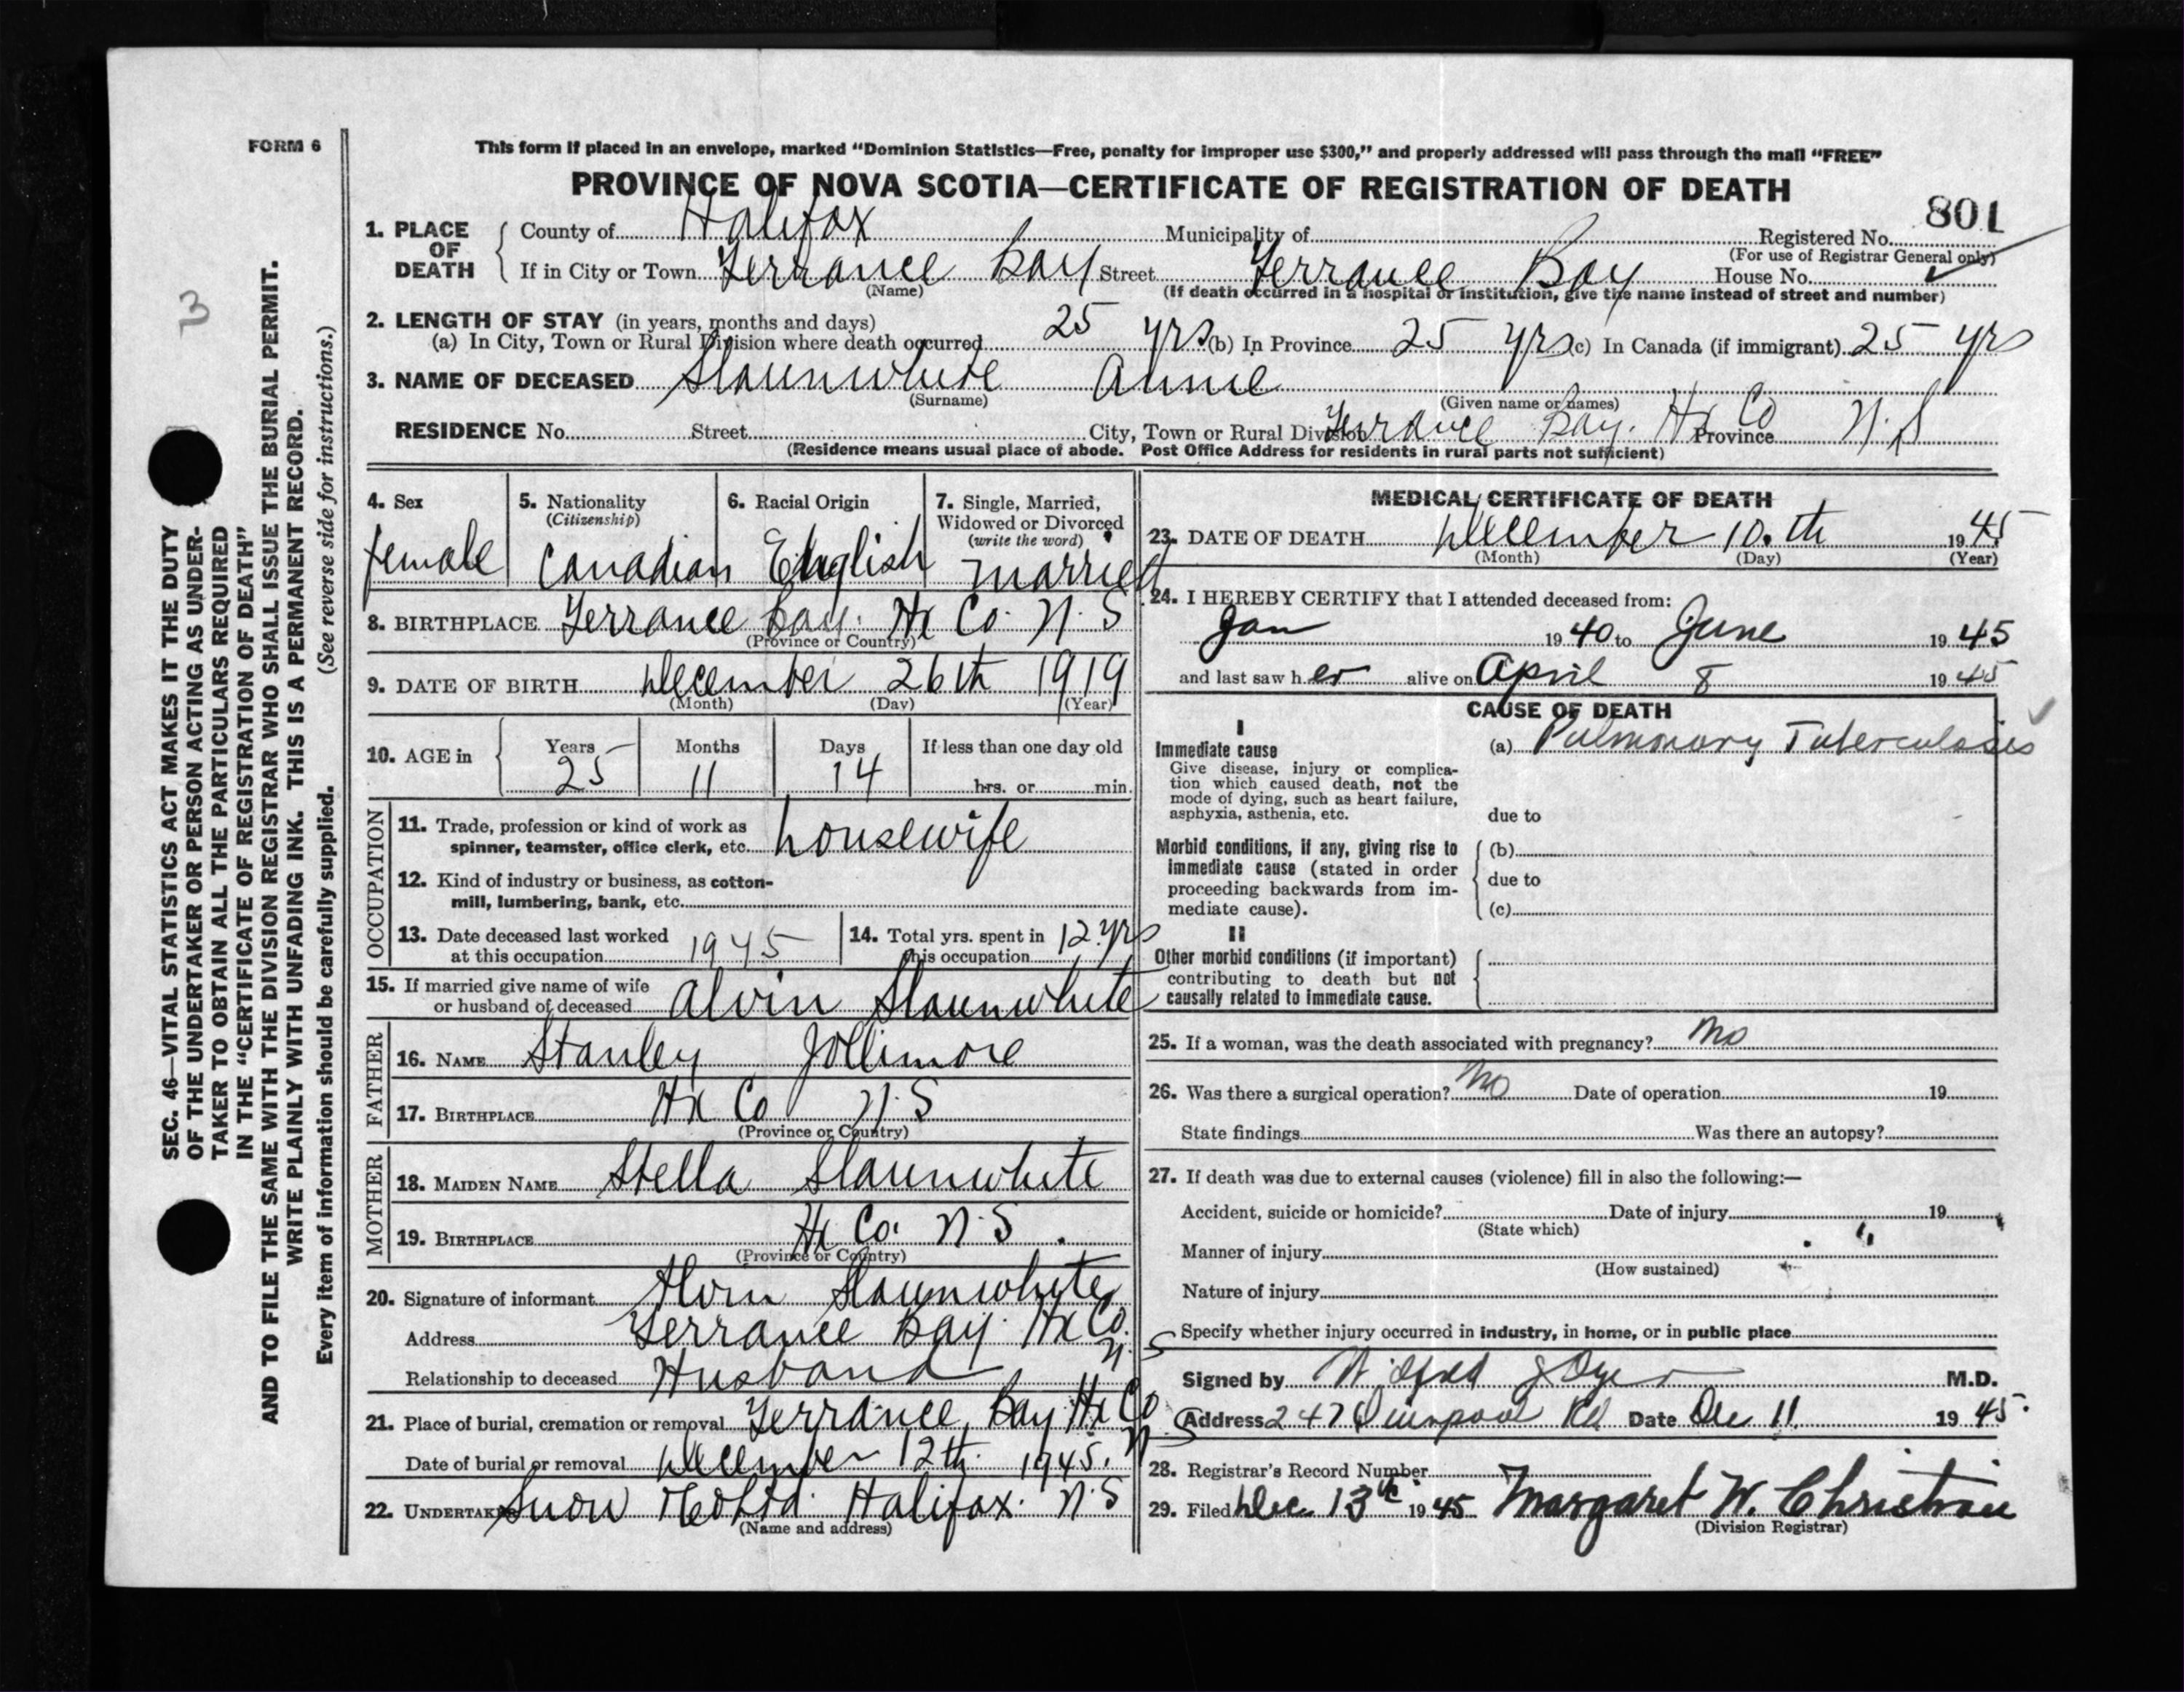 FORM 6
This form if placed in an envelope, marked "Dominion Statistics—Free, penalty for improper use $300," and properly addressed will pass through the mail "FREE"
PROVINCE OF NOVA SCOTIA—CERTIFICATE OF REGISTRATION OF DEATH
801
1. PLACE OF DEATH County of Halifax Municipality of Registered No.
(For use of Registrar General only)
If in City or Town Terrance Bay Street Terrance Bay House No.
(Name) (If death occurred in a hospital or institution, give the name instead of street and number)
2. LENGTH OF STAY (in years, months and days)
(a) In City, Town or Rural Division where death occurred 25 yrs (b) In Province 25 yrs (c) In Canada (if immigrant) 25 yrs
3. NAME OF DECEASED Slaunwhite Annie
(Surname) (Given name or names)
RESIDENCE No. Street City, Town or Rural Division Terrance Bay. Hx Co Province N.S
(Residence means usual place of abode. Post Office Address for residents in rural parts not sufficient)
4. Sex female
5. Nationality (Citizenship) Canadian
6. Racial Origin English
7. Single, Married, Widowed or Divorced (write the word) married
8. BIRTHPLACE Terrance Bay. Hx Co. N.S
(Province or Country)
9. DATE OF BIRTH December 26th 1919
(Month) (Day) (Year)
10. AGE in Years 25 Months 11 Days 14 If less than one day old hrs. or min.
OCCUPATION
11. Trade, profession or kind of work as spinner, teamster, office clerk, etc. housewife
12. Kind of industry or business, as cotton-mill, lumbering, bank, etc.
13. Date deceased last worked at this occupation 1945
14. Total yrs. spent in this occupation 12 yrs
15. If married give name of wife or husband of deceased Alvin Slaunwhite
FATHER
16. NAME Stanley Jollimore
17. BIRTHPLACE Hx Co N.S
(Province or Country)
MOTHER
18. MAIDEN NAME Stella Slaunwhite
19. BIRTHPLACE Hx Co. N.S.
(Province or Country)
20. Signature of informant Alvin Slaunwhite
Address Terrance Bay. Hx Co. N.S
Relationship to deceased Husband
21. Place of burial, cremation or removal Terrance Bay Hx Co N.S
Date of burial or removal December 12th. 1945.
22. UNDERTAKER Snow & Co Ltd. Halifax. N.S
(Name and address)
MEDICAL CERTIFICATE OF DEATH
23. DATE OF DEATH December 10.th 1945
(Month) (Day) (Year)
24. I HEREBY CERTIFY that I attended deceased from:
Jan 1940 to June 1945
and last saw her alive on April 8 1945
CAUSE OF DEATH
I
Immediate cause (a) Pulmonary Tuberculosis
Give disease, injury or complication which caused death, not the mode of dying, such as heart failure, asphyxia, asthenia, etc.
due to
Morbid conditions, if any, giving rise to immediate cause (stated in order proceeding backwards from immediate cause).
(b)
due to
(c)
II
Other morbid conditions (if important) contributing to death but not causally related to immediate cause.
25. If a woman, was the death associated with pregnancy? No
26. Was there a surgical operation? No Date of operation 19
State findings Was there an autopsy?
27. If death was due to external causes (violence) fill in also the following:—
Accident, suicide or homicide? Date of injury 19
(State which)
Manner of injury
(How sustained)
Nature of injury
Specify whether injury occurred in industry, in home, or in public place
Signed by Wilfred J Dyer M.D.
Address 247 Quinpool Rd Date Dec 11 1945.
28. Registrar's Record Number
29. Filed Dec. 13th 1945 Margaret W. Christian
(Division Registrar)
3
SEC. 46—VITAL STATISTICS ACT MAKES IT THE DUTY
OF THE UNDERTAKER OR PERSON ACTING AS UNDER-
TAKER TO OBTAIN ALL THE PARTICULARS REQUIRED
IN THE "CERTIFICATE OF REGISTRATION OF DEATH"
AND TO FILE THE SAME WITH THE DIVISION REGISTRAR WHO SHALL ISSUE THE BURIAL PERMIT.
WRITE PLAINLY WITH UNFADING INK. THIS IS A PERMANENT RECORD.
Every item of information should be carefully supplied. (See reverse side for instructions.)